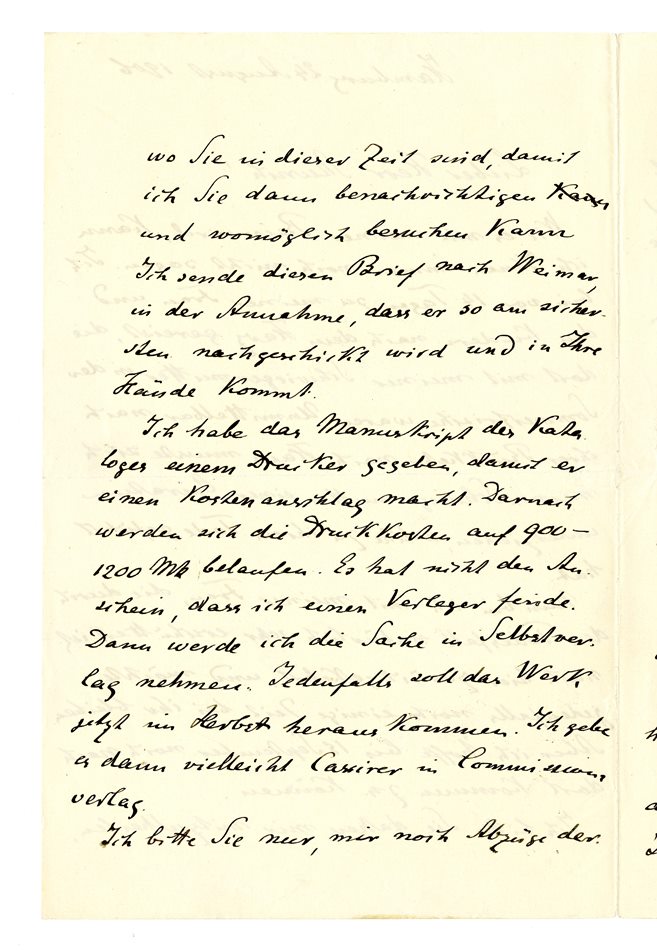 wo Sie in dieser Zeit sind, damit
ich Sie dann benachrichtigen kann
und womöglich besuchen kann
Ich sende diesen Brief nach Weimar,
in der Annahme, dass er so am sicher-
sten nachgeschickt wird und in Ihre
Hände kommt.
Ich habe das Manuskript des Kata-
loges einem Drucker gegeben, damit er
einen Kostenanschlag macht. Darnach
werden sich die Druckkosten auf 900–
1200 Mk belaufen. Es hat nicht den An-
schein, dass ich einen Verleger finde.
Dann werde ich die Sache in Selbstver-
lag nehmen. Jedenfalls soll das Werk
jetzt im Herbst herauskommen. Ich gebe
es dann vielleicht Cassirer in Commissions
verlag.
Ich bitte Sie nur, mir noch Abzüge der